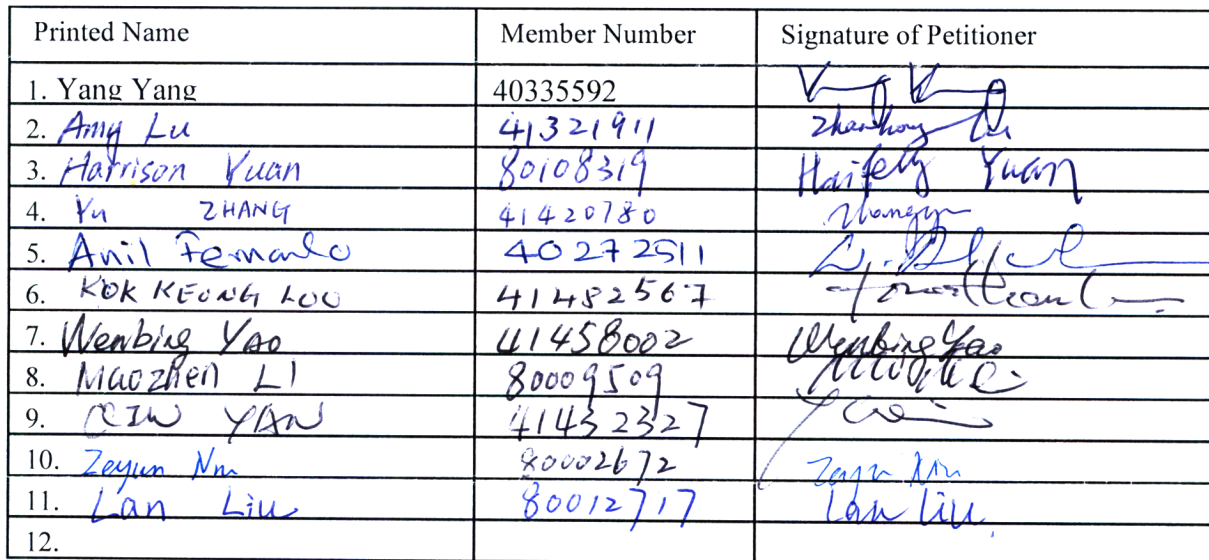 Printed Name Member Number Signature of Petitioner
1. Yang Yang 40335592
2. Amy Lu 41321911 Zhanhong Lu
3. Harrison Yuan 80108319 Haifeng Yuan
4. Yu ZHANG 41420780 Zhangyu
5. Anil Fernando 40272511
6. KOK KEONG LOO 41482567
7. Wenbing YAO 41458002 Wenbing Yao
8. Maozhen LI 80009509
9. QIN YAN 41432327
10. Zeyun 80002672
11. Lan Liu 80012717 Lan Liu
12.